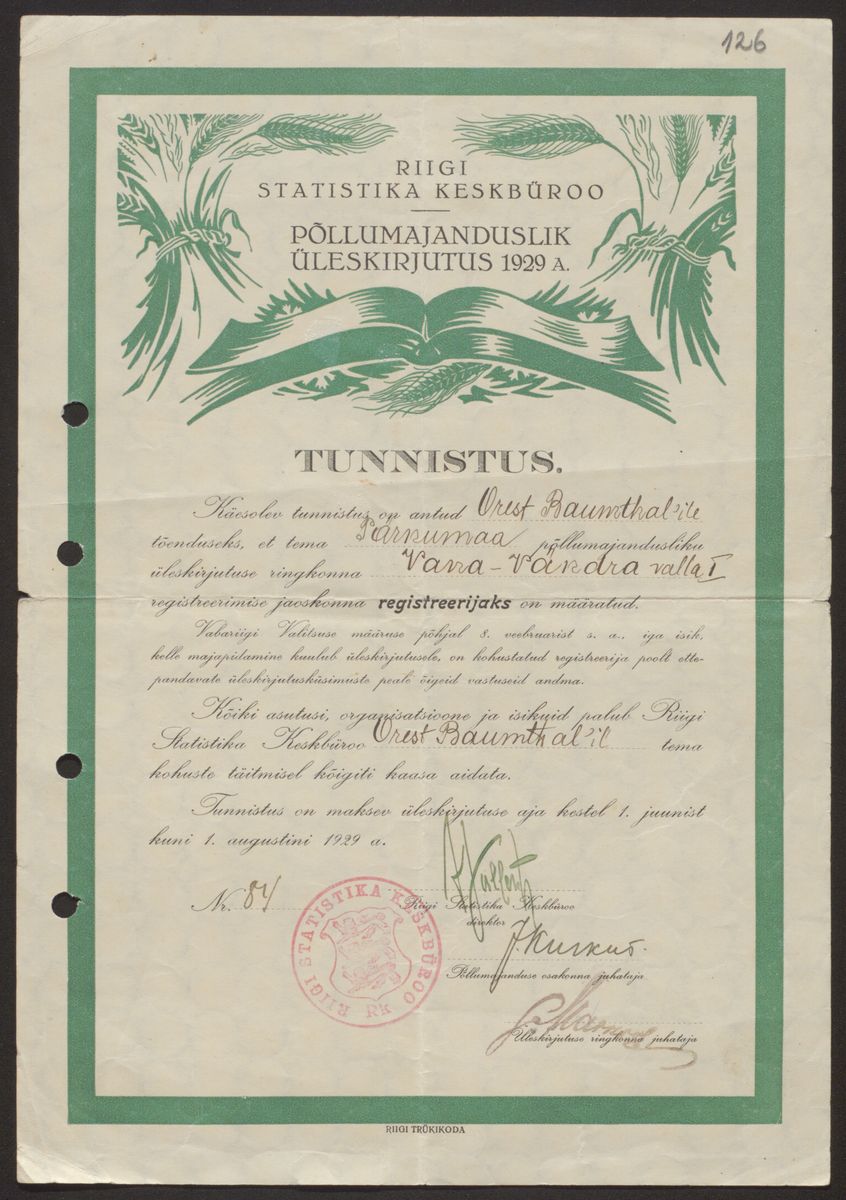 126
RIIGI
STATISTIKA KESKBÜROO
PÕLLUMAJANDUSLIK
ÜLESKIRJUTUS 1929 A.
TUNNISTUS.
Käesolev tunnistus on antud Orest Baumthal'ile
tõenduseks, et tema Pärnumaa põllumajandusliku
üleskirjutuse ringkonna Vana-Vändra valla I
registreerimise jaoskonna registreerijaks on määratud.
Vabariigi Valitsuse määruse põhjal 8. veebruarist s. a., iga isik,
kelle majapidamine kuulub üleskirjutusele, on kohustatud registreerija poolt ette-
pandavate üleskirjutusküsimuste peale õigeid vastuseid andma.
Kõiki asutusi, organisatsioone ja isikuid palub Riigi
Statistika Keskbüroo Orest Baumthal'il tema
kohuste täitmisel kõigiti kaasa aidata.
Tunnistus on maksev üleskirjutuse aja kestel 1. juunist
kuni 1. augustini 1929 a.
Nr. 84
RIIGI STATISTIKA KESKBÜROO
Rk
Riigi Statistika Keskbüroo
direktor
Põllumajanduse osakonna juhataja
Üleskirjutuse ringkonna juhataja
RIIGI TRÜKIKODA